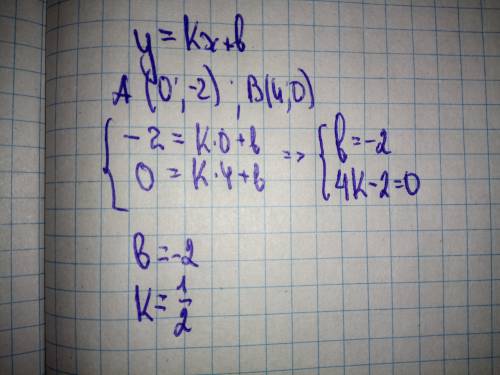 y = kx+b
A (0; -2); B(4,0)
{ -2 = k·0+b => { b=-2
0 = k·4+b 4k-2=0
b=-2
k=1/2